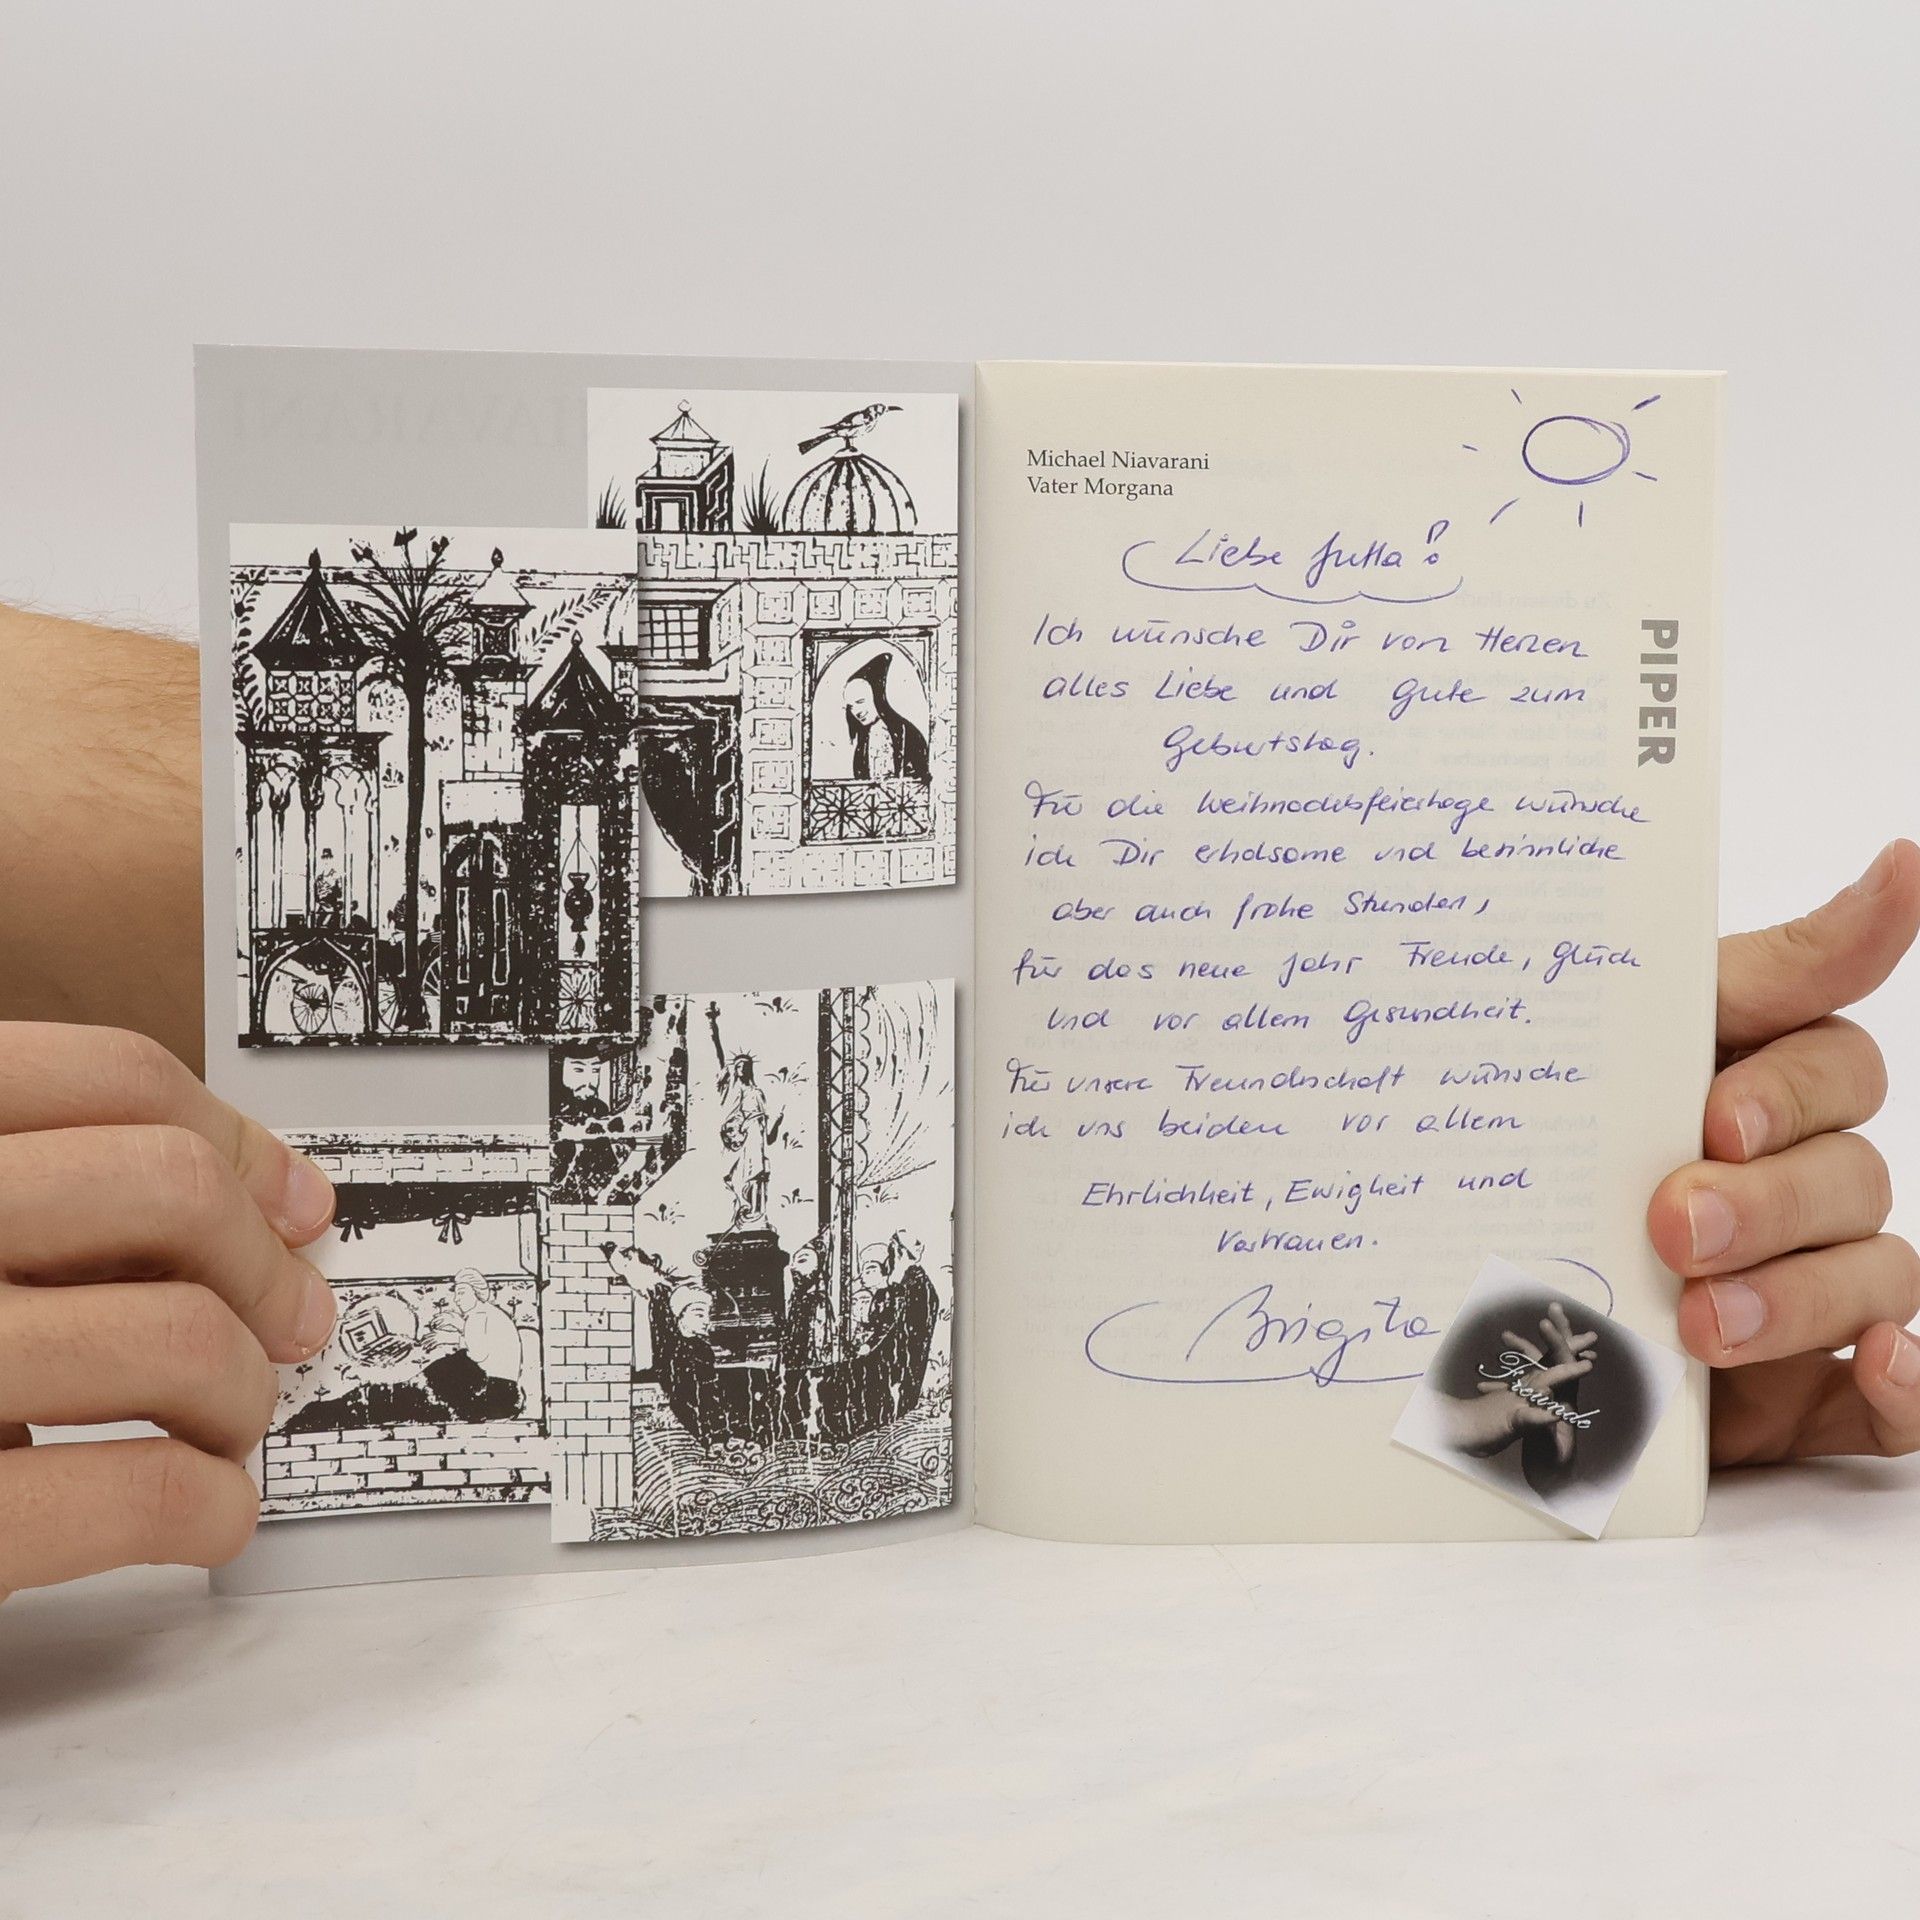 Michael Niavarani
Vater Morgana
Liebe Jutta!
Ich wünsche Dir von Herzen
alles Liebe und Gute zum
Geburtstag.
Für die Weihnachtsfeiertage wünsche
ich Dir erholsame und besinnliche
aber auch frohe Stunden,
für das neue Jahr Freude, Glück
und vor allem Gesundheit.
Für unsere Freundschaft wünsche
ich uns beiden vor allem
Ehrlichkeit, Ewigkeit und
Vertrauen.
Brigita
Freunde
PIPER